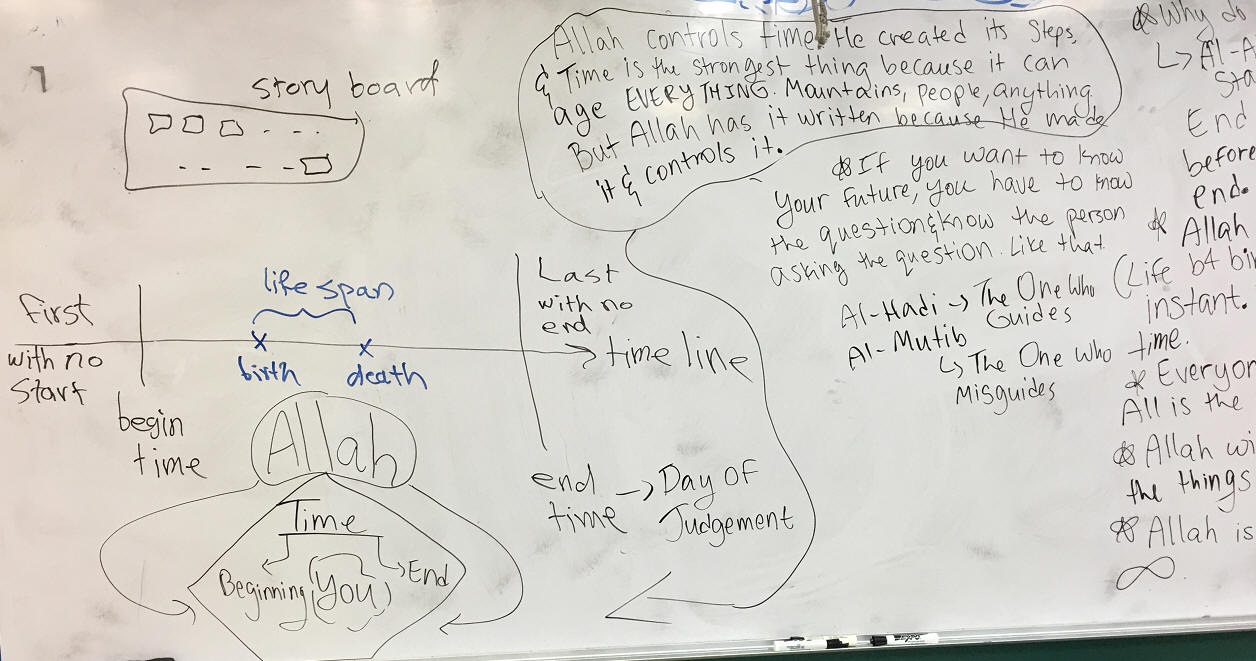 story board
Allah controls time. He created its steps,
& Time is the strongest thing because it can
age EVERYTHING. Mountains, people, anything
But Allah has it written because He made
it & controls it.
* If you want to know
your future, you have to know
the question & know the person
asking the question. Like that
Al-Hadi → The One Who
Guides
Al-Mutib
↳ The One Who
Misguides
First
with no
start
begin
time
life span
x birth
x death
Last
with no
end
time line
end
time → Day of
Judgement
Allah
Time
Beginning (You) End
* Why do
↳ Al-A
Sta
End
before
end.
* Allah
(Life b4 bir
instant.
time.
* Everyon
All is the
* Allah wi
the things
* Allah is
∞